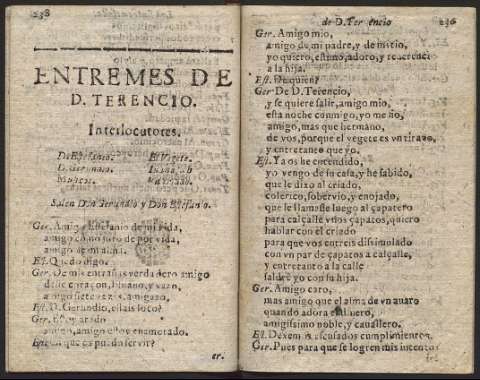 238
ENTREMES DE
D. TERENCIO.
Interlocutores.
D. Estefanio. El Vegete.
D. Gerundio.
Musicos.
Salen Don Gerundio y Don Estefanio.
Ger. Amigo Estefanio de mi vida,
amigo como suro de por vida,
amigo de mi alma.
Est. Quedo digo.
Ger. De mis entrañas verdadero amigo
deste coraçon, higado, y vazo,
amigo siete vezes, amigazo,
Est. D. Gerundio, estais loco?
Ger. Estoy atado
amigo, amigo estoy enamorado.
Est. en que os puedo servir?
er.
de D. Terencio 236
Ger. Amigo mio,
amigo de mi padre, y de mi tio,
yo quiero, estimo, adoro, y reverencio
a la hija.
Est. De quien?
Ger De D. Terencio,
y se quiere salir, amigo mio,
esta noche conmigo, yo me fio,
amigo, mas que hermano,
de vos, porque el vegete es vn tirano,
y entretanto que yo.
Est. Ya os he entendido,
yo vengo de su casa, y he sabido,
que le dixo al criado,
colerico, sobervio, y enojado,
que le llamasse luego al çapatero
para calçalle vnos çapatos, quiero
hablar con el criado
para que vos entreis dissimulado
con vn par de çapatos a calçalle,
y entretanto a la calle
saldrè yo con su hija.
Ger. Amigo caro,
mas amigo que el alma de vn avaro
quando adora el dinero,
amigissimo noble, y cavallero.
Est. Dexemos escusados cumplimientos.
Ger. Pues para que se logren mis intentos